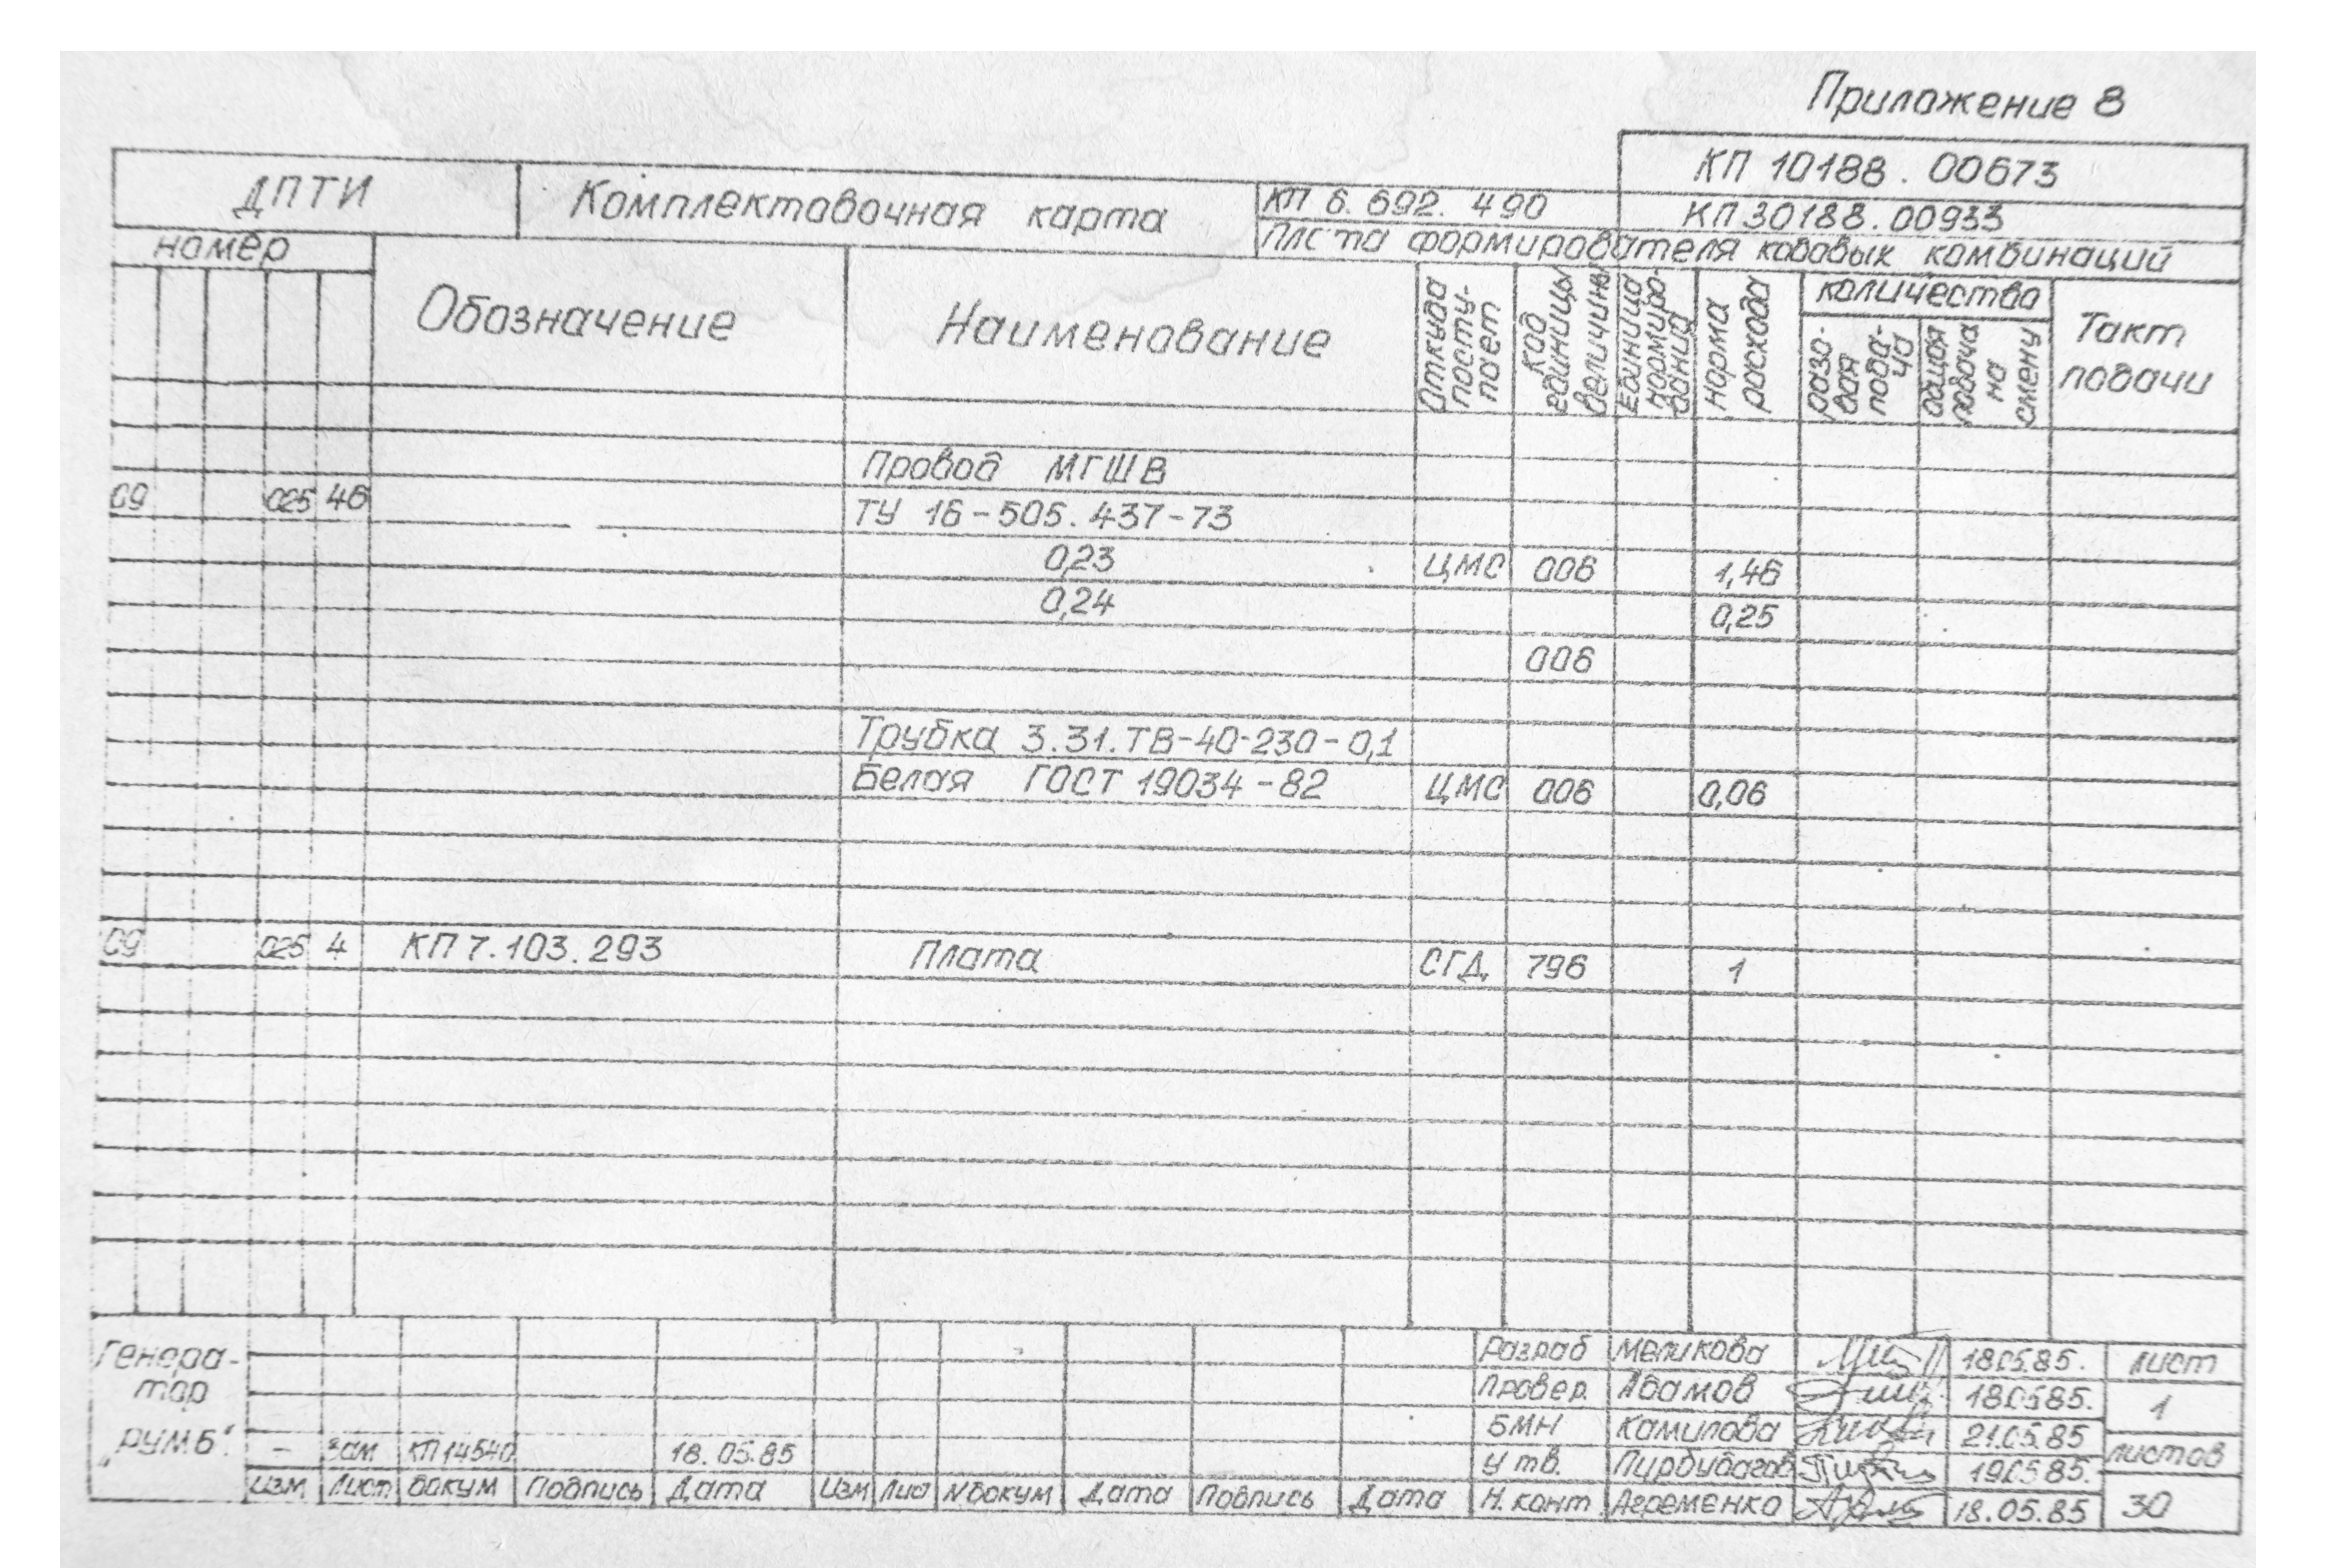 Приложение 8
КП 10188.00673
ДПТИ Комплектовочная карта КП 6.692.490 КП 30188.00933
Плата формирователя кодовых комбинаций
номер
Обозначение Наименование Откуда посту-пает Код единицы величины Единица нормиро-вания норма расхода количество Такт подачи
разо-вая пода-ча общая подача на смену
Провод МГШВ
09 025 46 ТУ 16-505.437-73
0,23 ЦМС 006 1,46
0,24 0,25
006
Трубка 3.31.ТВ-40-230-0,1
Белая ГОСТ 19034-82 ЦМС 006 0,06
09 025 4 КП 7.103.293 Плата СГД, 796 1
Генера-тор „РУМБ“.
Разраб Меликова 18.05.85. лист
Провер. Абамов 18.05.85. 1
БМН Камилова 21.05.85 листов
- зам КП14540 18.05.85 Утв. 19.05.85.
Изм Лист докум Подпись Дата Изм Лис Nдокум Дата Подпись Дата Н.конт Агременко 18.05.85 30